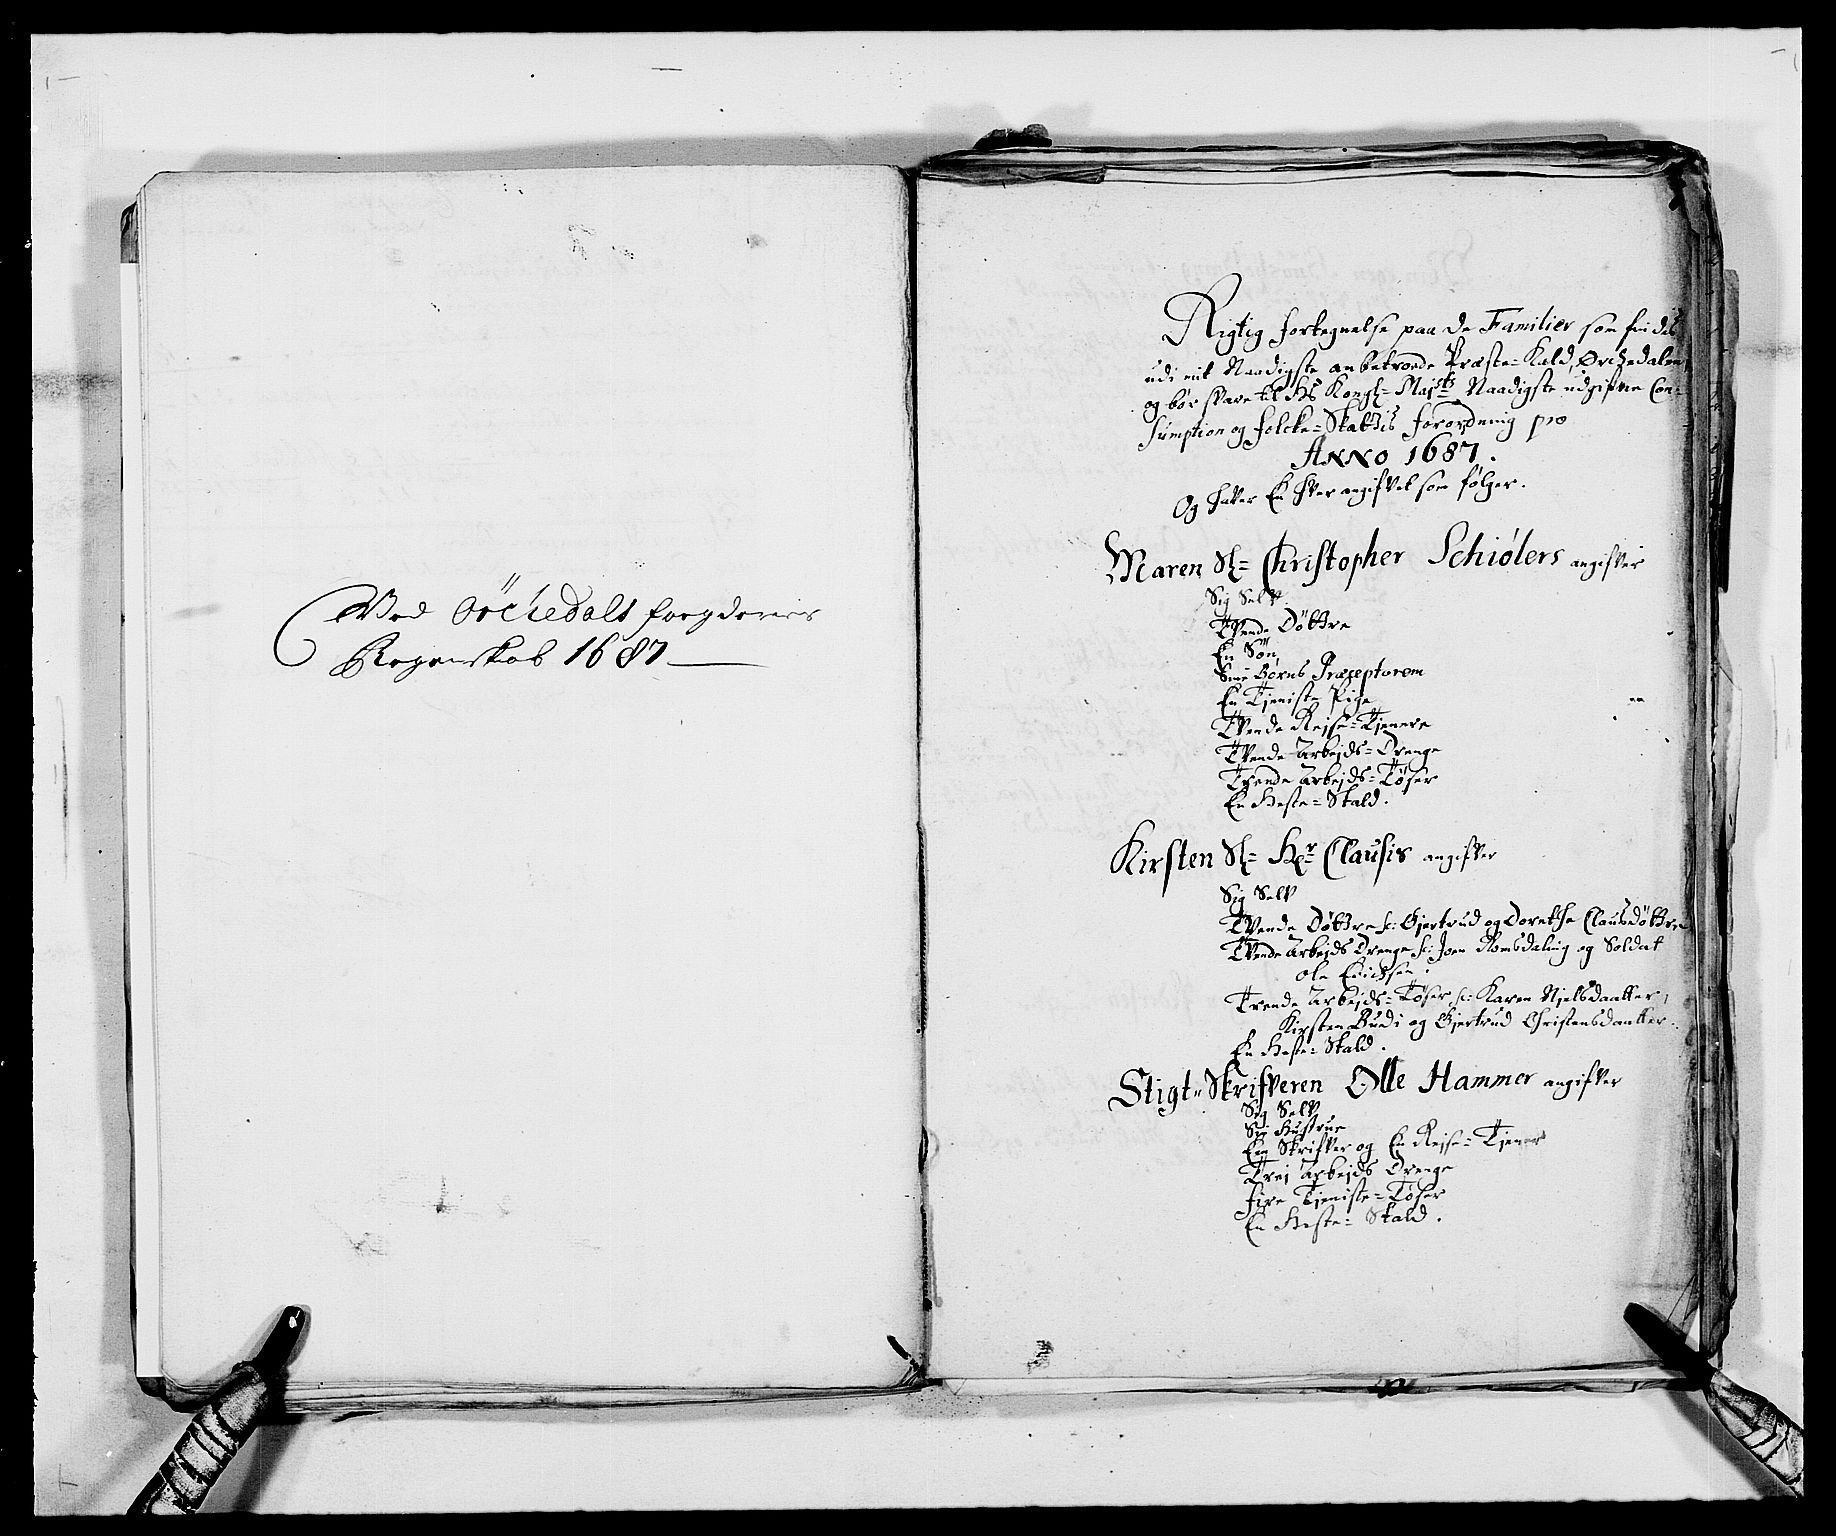 Ved Örchedals fougderies
Regenskab 1687
Rigtig fortegnelse paa de Familier som findes
udi mit Naadigste anbetroede Præste=Kald, Ørchedalen,
og bør svare til Hs Kongl= Maj<sup>sts</sup> Naadigste udgifne Con=
sumption og folcke=Skattis forordning pro
Anno 1687.
Og haver En hver angifvet som følger.
Maren Sl= Christopher Schiølers angifver
Sig Selv
Tvende Døttre
En Søn
Sine Børns Præceptorem
En Tjeniste Pige
Tvende Rejse=Tjenere
Tvende Arbejds=Drenge
Trende Arbejds=Tøser
En Heste=Stald.
Kirsten Sl= Hr Clausis angifver
Sig Selv
Tvende Døttre sc: Gjertrud og Dorethe Clausdøttre
Tvende Arbejds Drenge sc: Joen Romsdaling og Soldat
Ole Erichsen.
Trende Arbejds=Tøser sc: Karen Njelsdaatter,
Kirsten Budi og Gjertrud Christensdaatter.
En Heste=Stald.
Stigt=Skrifveren Olle Hammer angifver
Sig Selv
Sin Hustrue
Een Skrifver og En Rejse=Tjener
Trej Arbejds Drenge
fire Tjeniste=Tøser
En Heste=Stald.